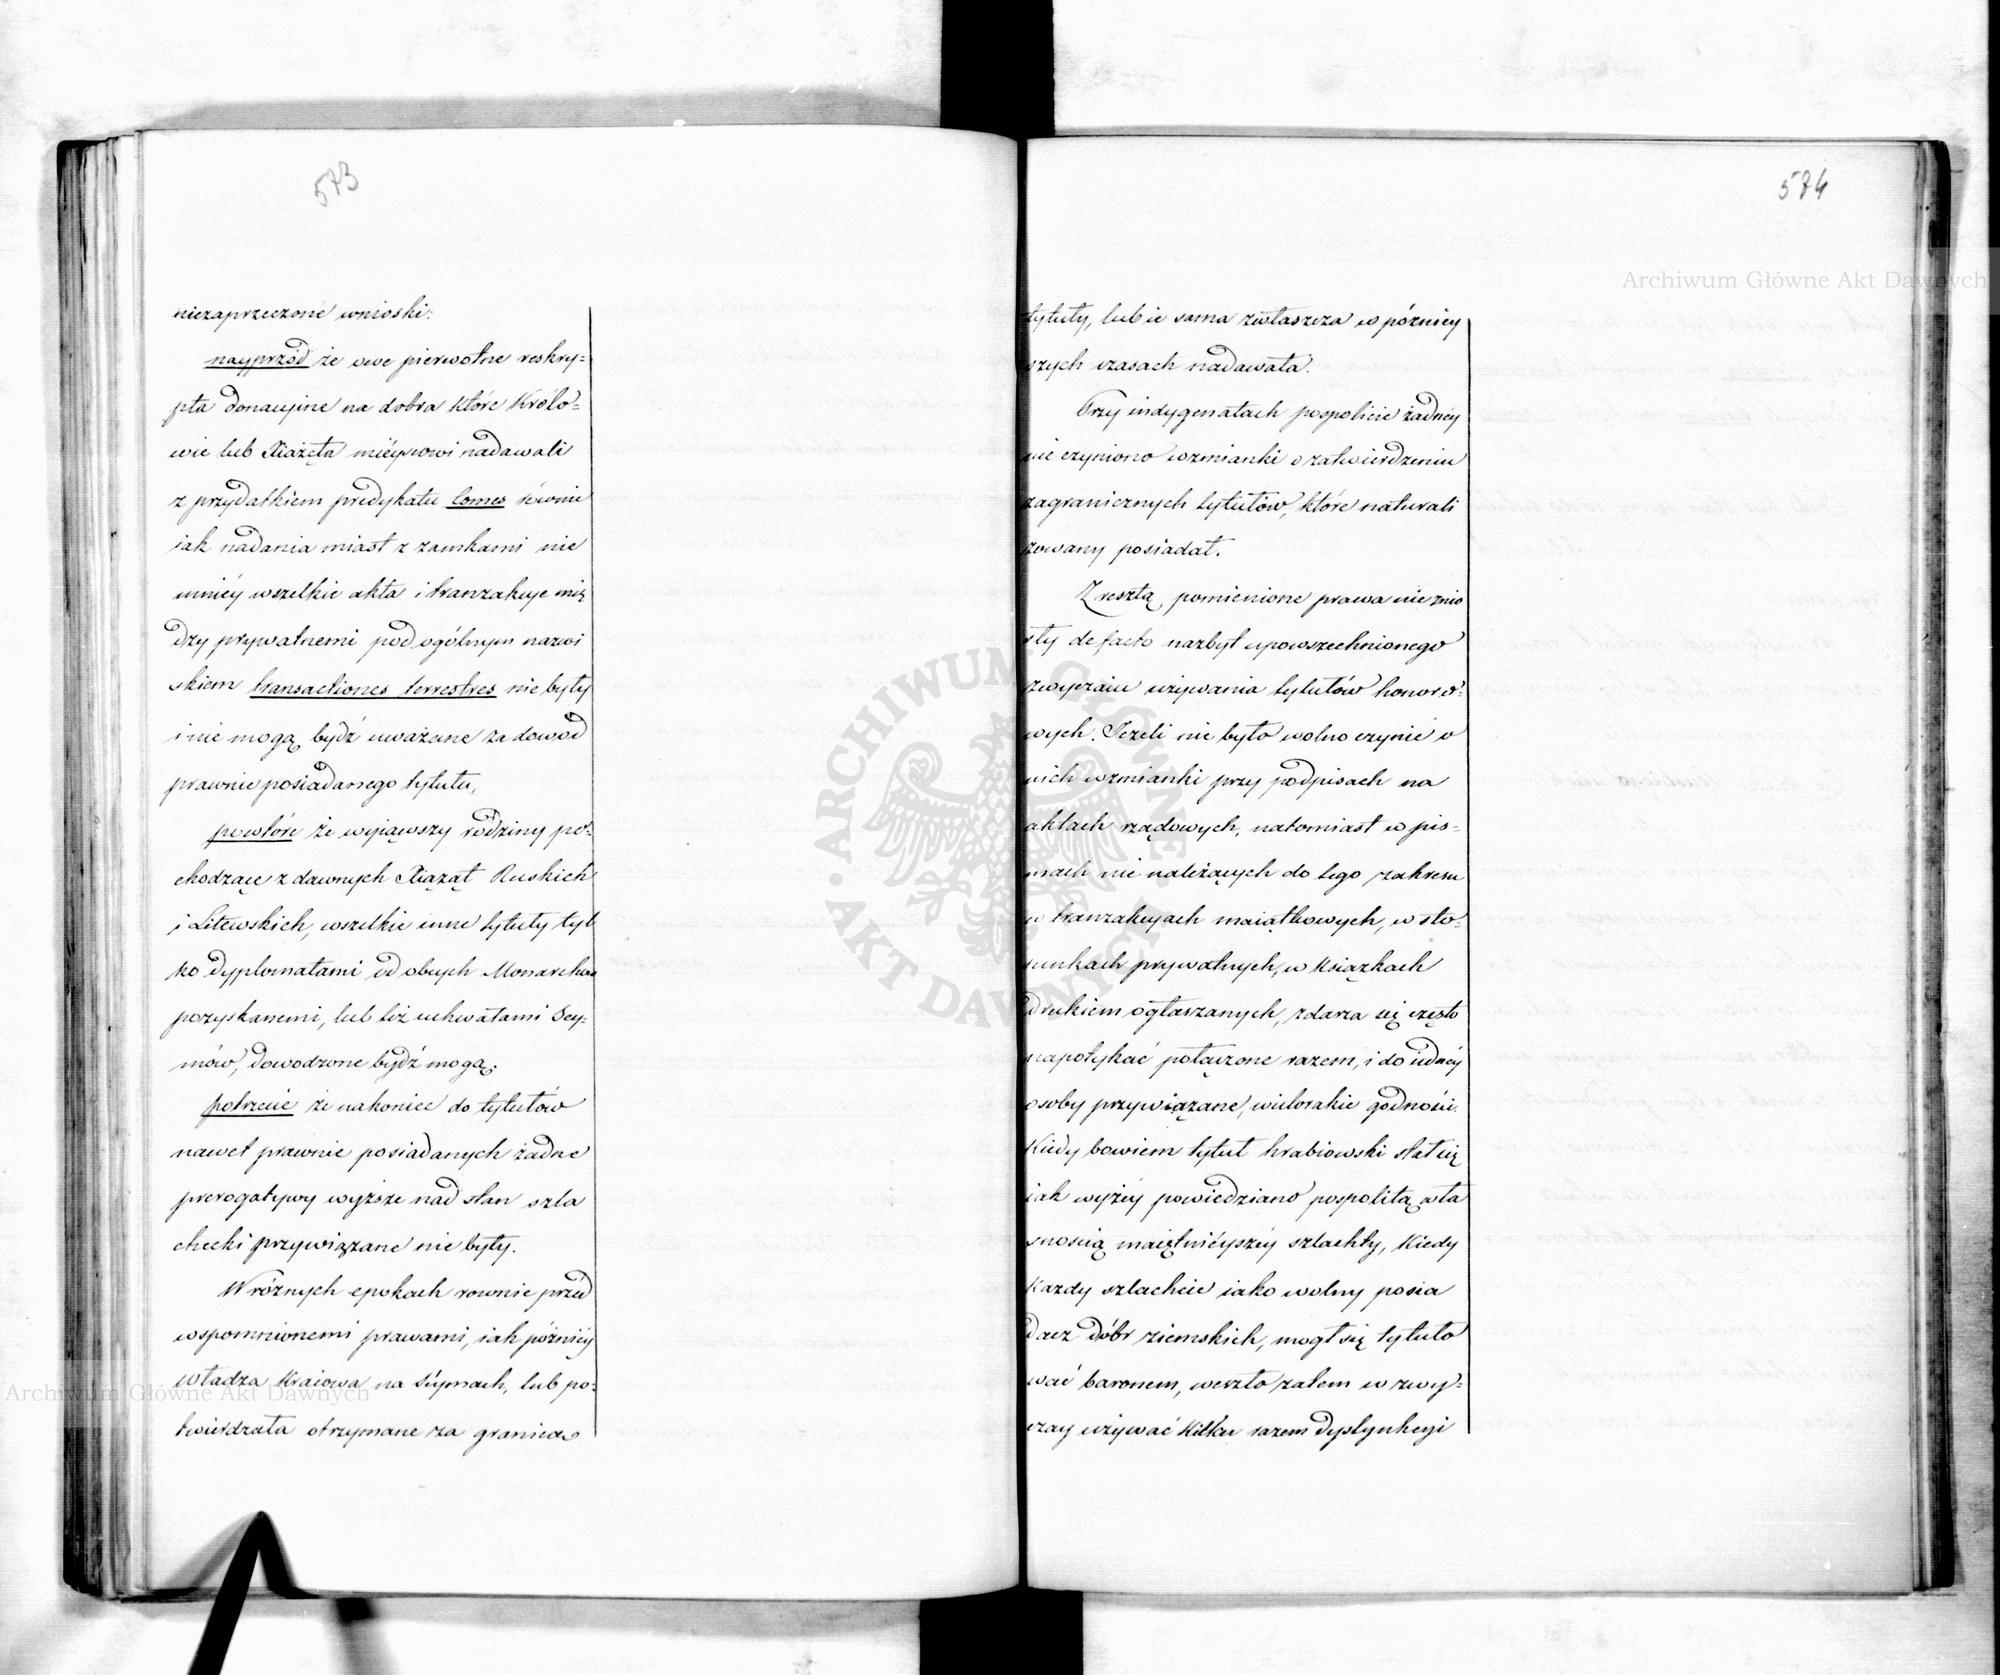 573
niezaprzeczone wnioski:
nayprzód że owe pierwotne reskry=
pta donacyine na dobra które Królo=
wie lub Xiążęta mieyscowi nadawali
z przydatkiem predykatu Comes równie
iak nadania miast z zamkami nie
mniéy wszelkie akta i tranzakcye mię
dzy prywatnemi pod ogólnym nazwi
skiem transactiones terrestres nie były
i nie mogą bydź uważane za dowod
prawnie posiadanego tytułu,
powtóre że wyiąwszy rodziny po=
chodzące z dawnych Xiążąt Ruskich
i Litewskich, wszelkie inne tytuły tyl
ko dyplomatami od obcych Monarchów
pozyskanemi, lub też uchwałami Sey=
mów, dowodzone bydź mogą.
potrzecie że nakoniec do tytułów
nawet prawnie posiadanych żadne
prerogatywy wyższe nad stan szla
checki przywiązane nie były.
W różnych epokach rownie przed
wspomnionemi prawami, iak późniéy
władza Kraiowa na Séymach, lub po=
twierdzała otrzymane za granicą
574
tytuły, lub ie sama zwłaszcza w pózniey
szych czasach nadawała.
Przy indygenatach pospolicie żadnéy
nie czyniono wzmianki o zatwierdzeniu
zagranicznych tytułów, które naturali
zowany posiadał.
Zresztą pomienione prawa nie znio
sły de facto nazbyt upowszechnionego
zwyczaiu używania tytułów honoro=
wych. Jeżeli nie było wolno czynić o
nich wzmianki przy podpisach na
aktach rządowych, natomiast w pis=
mach nie należących do tego zakresu
w tranzakcyach maiątkowych, w sto=
sunkach prywatnych, w Książkach
drukiem ogłaszanych, zdarza się często
napotykać połączone razem, i do iednéy
osoby przywiązane, wielorakie godności.
Kiedy bowiem tytuł hrabiowski stał się
iak wyżéy powiedziano pospolitą wła
snoscią maiętniéyszéy szlachty, Kiedy
Kazdy szlachcic iako wolny posia
dacz dóbr ziemskich, mogł się tytuło
wać baronem, weszło zatem w zwy=
czay używać Kilku razem dystynkcyi
Archiwum Główne Akt Dawnych
Archiwum Główne Akt Dawnych
ARCHIWUM GŁÓWNE · AKT DAWNYCH ·